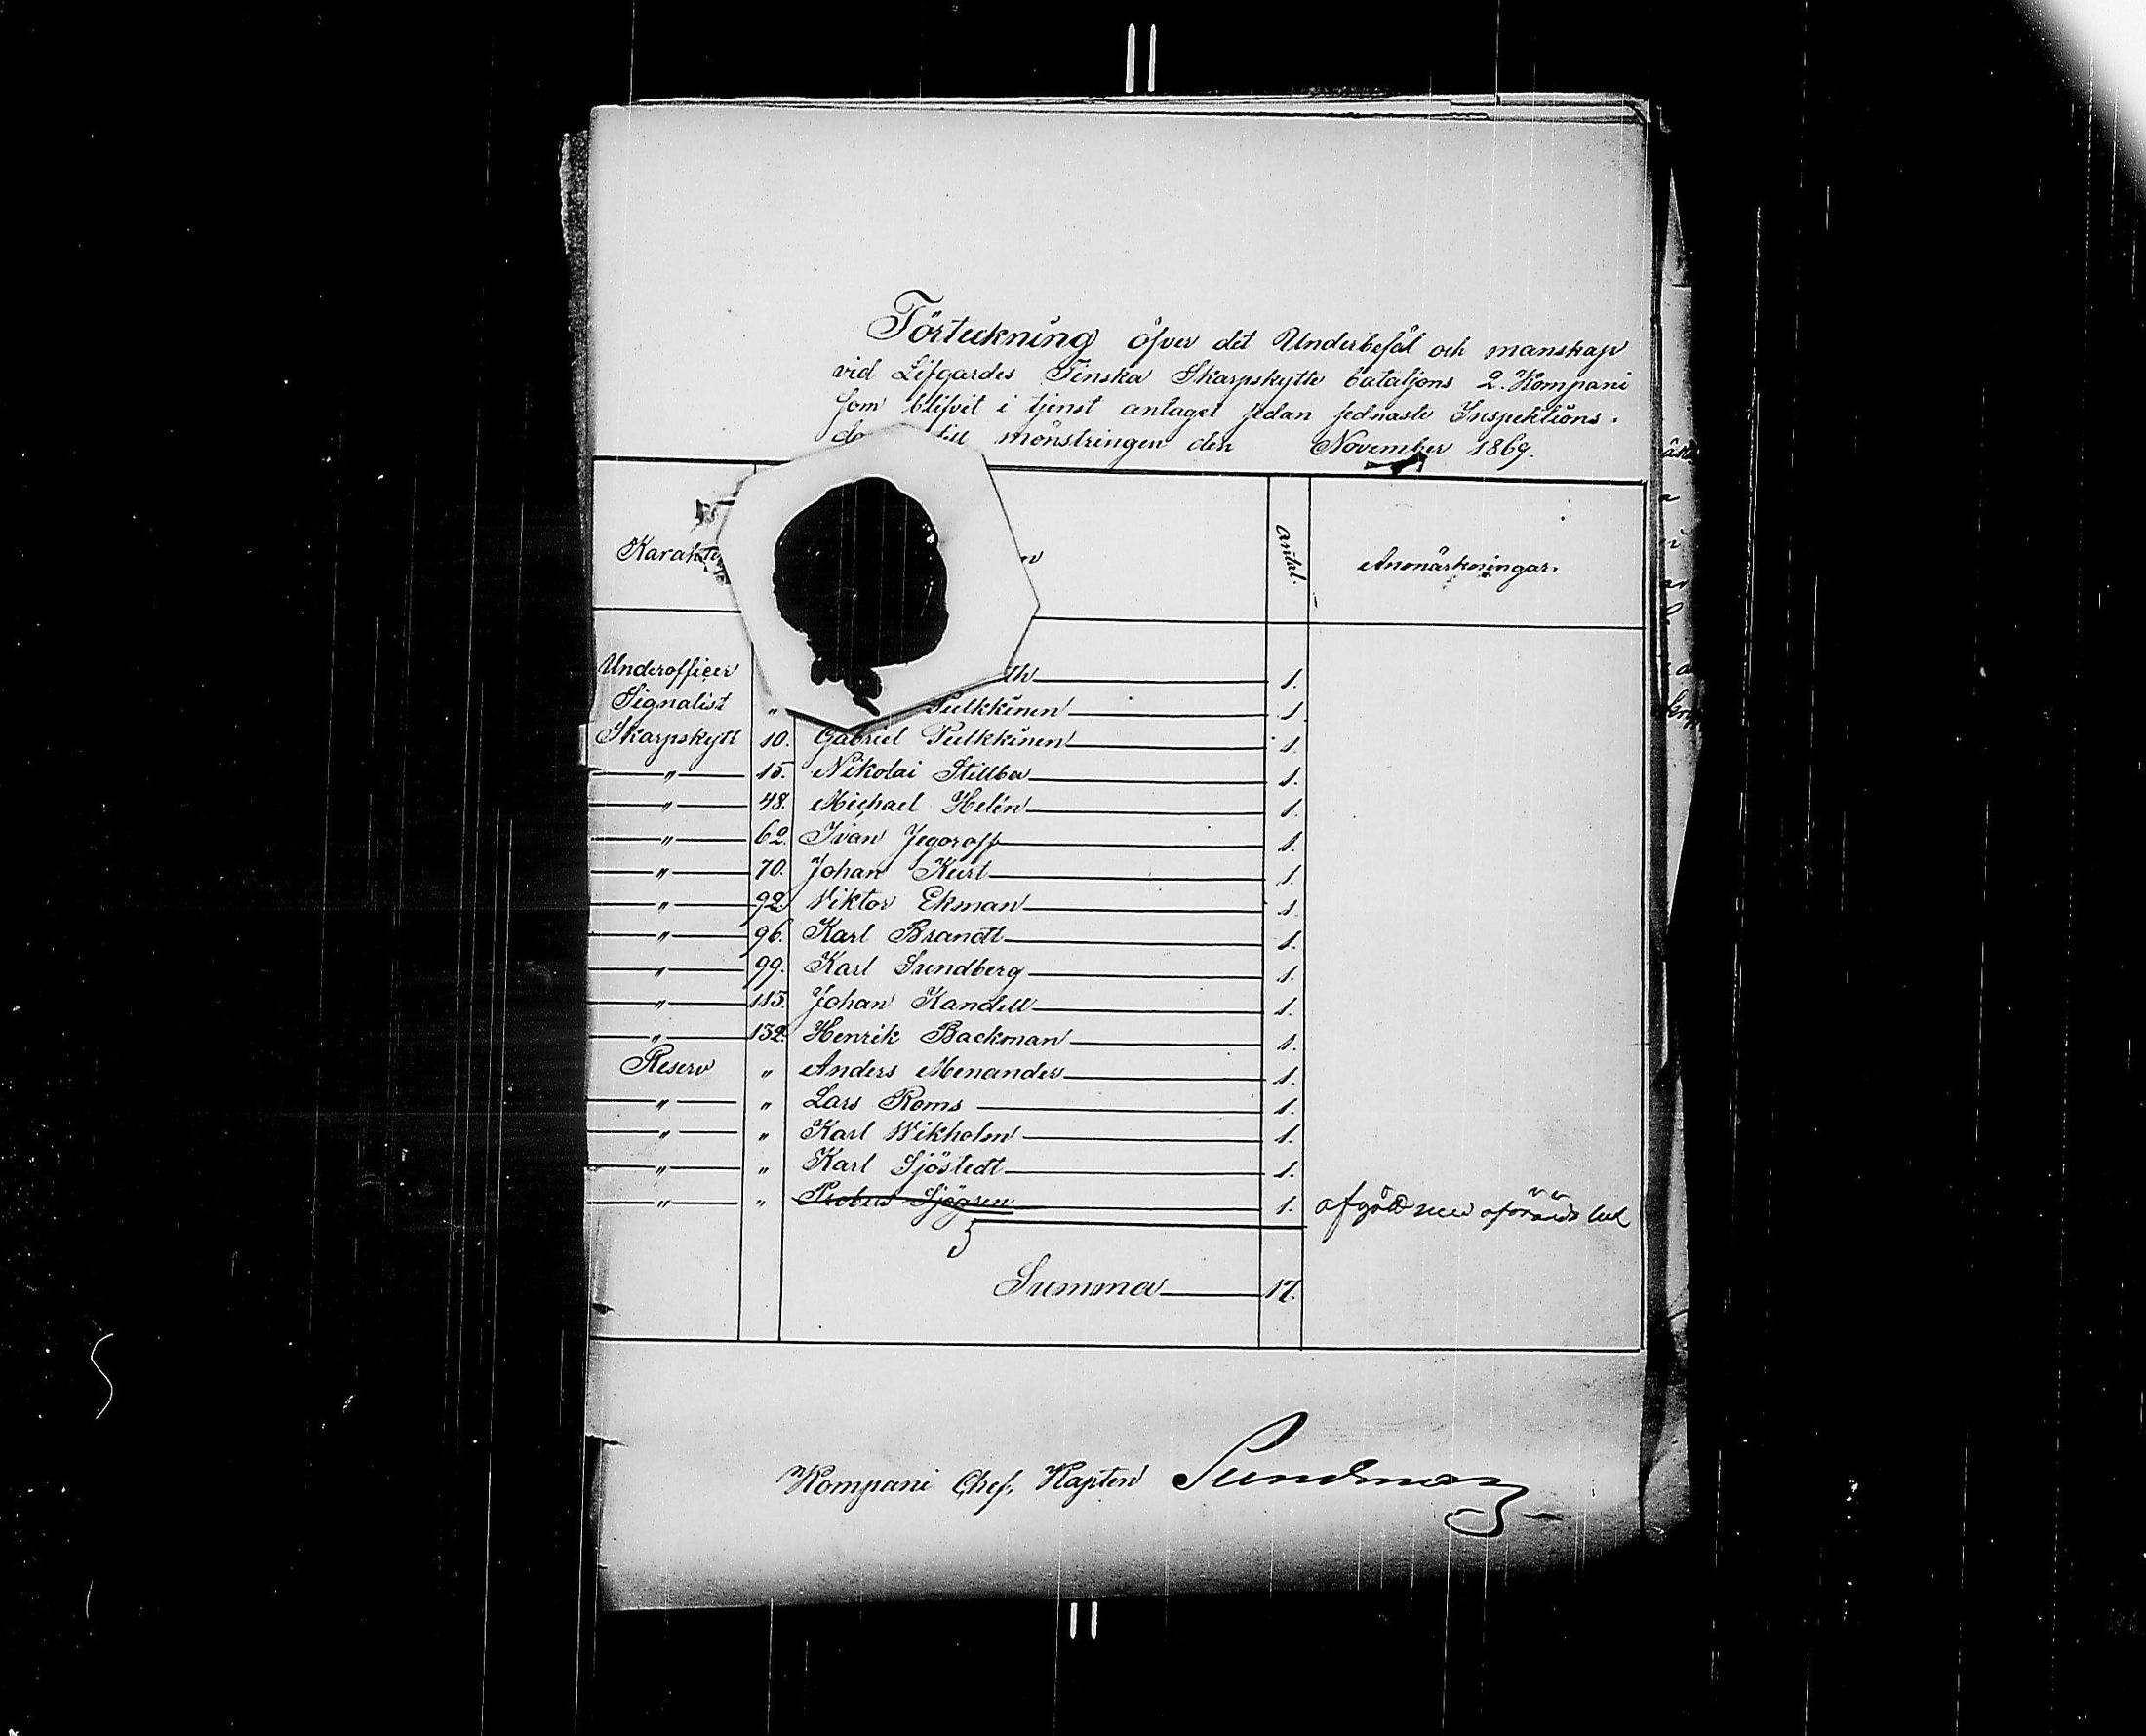 Förteckning öfver det Underbefäl och manskap
vid Lifgardes Finska Skarpskytte bataljons 2. Kompani
som blifvit i tjenst antaget sedan sednaste Inspektions.
till mönstringen den November 1869.
Antal. Anmärkningar.
Underofficer 1.
Signalist " Pulkkinen 1
Skarpskytt 10. Gabriel Pulkkinen 1.
" 15. Nikolai Stillba 1.
" 48. Michael Helin 1.
" 62. Ivan Jegoroff 1.
" 70. Johan Kurt 1.
" 92. Viktor Ekman 1
" 96. Karl Brandt 1.
" 99. Karl Sundberg 1.
" 115. Johan Kandell 1.
" 132. Henrik Backman 1.
Reserv " Anders Menander 1.
" " Lars Roms 1.
" " Karl Wikholm 1.
" " Karl Sjöstedt 1.
" " Sjögren 1.
Summa 17.
Kompani Chef, Kapten Sundman